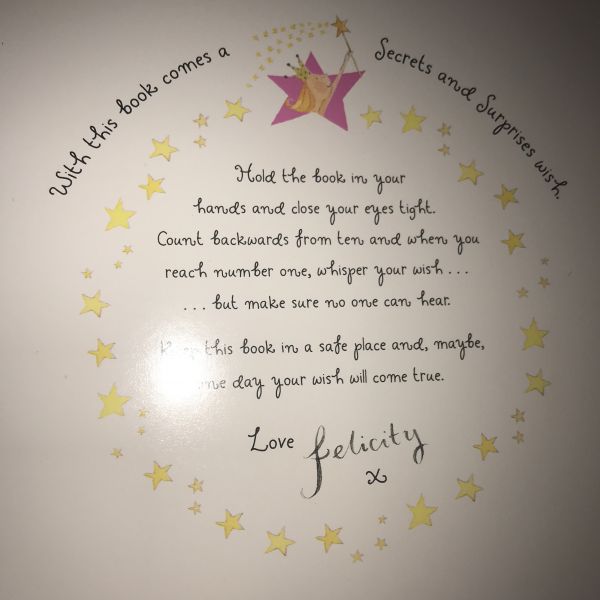 With this book comes a
Secrets and Surprises wish.
Hold the book in your
hands and close your eyes tight.
Count backwards from ten and when you
reach number one, whisper your wish . . .
. . . but make sure no one can hear.
Keep this book in a safe place and, maybe,
one day your wish will come true.
Love felicity
x